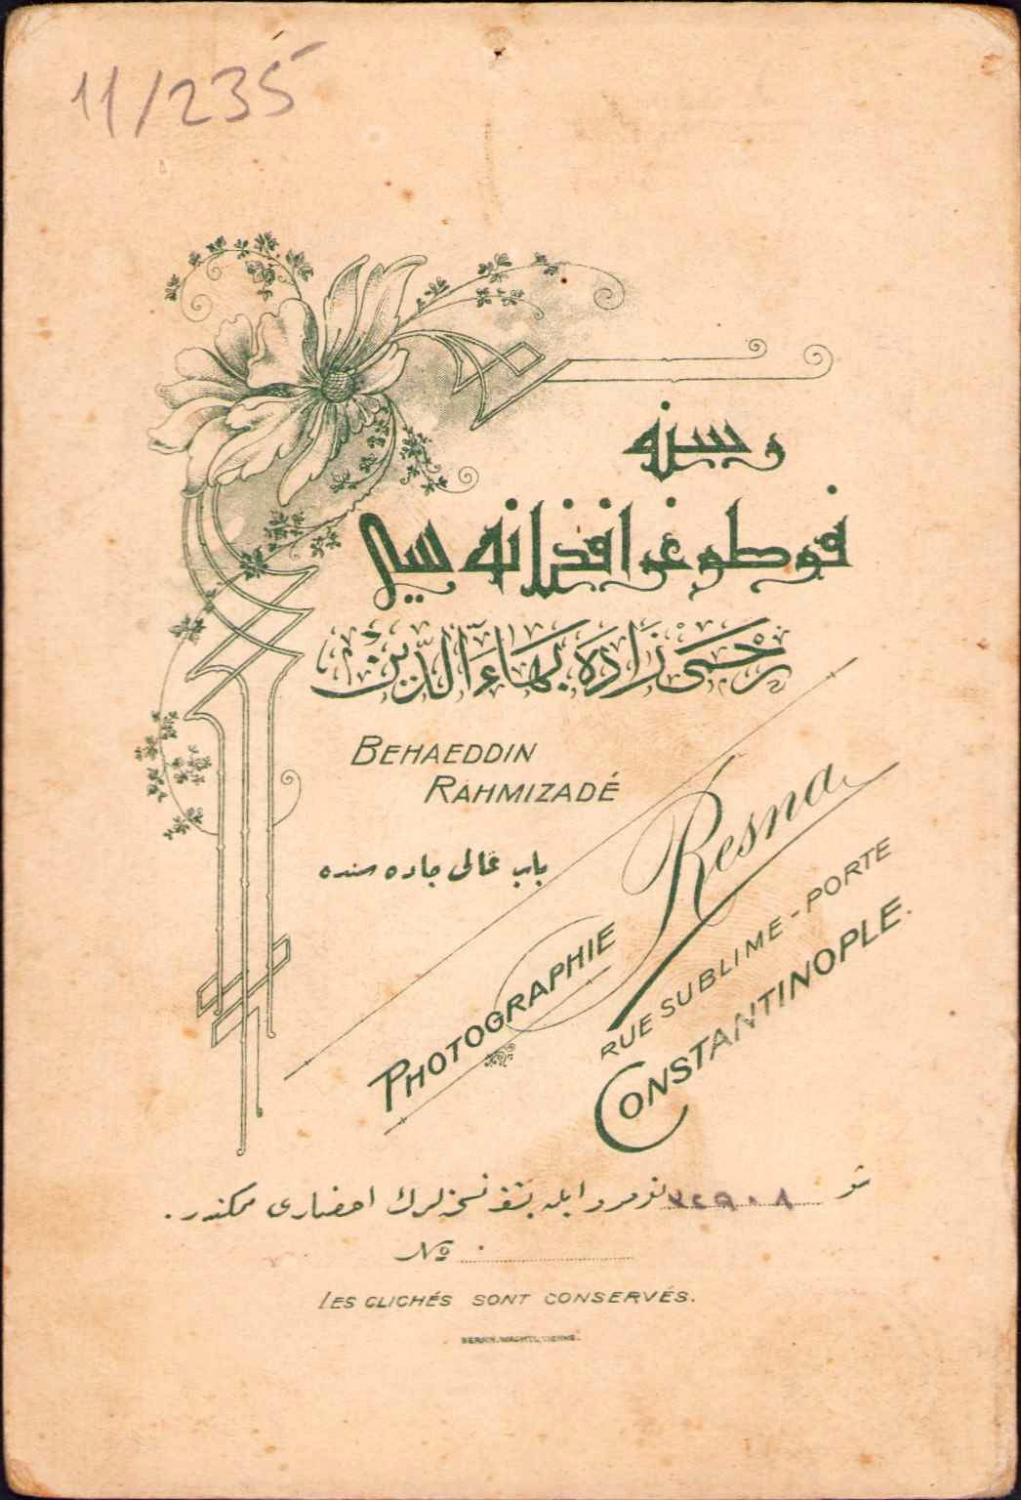 11/235
رسنه
فوطوغرافخانه سی
رحمی زاده بهاءالدین
BEHAEDDIN
RAHMIZADÉ
باب عالی جاده سنده
PHOTOGRAPHIE
Resna
RUE SUBLIME-PORTE
CONSTANTINOPLE.
شو نومرو ایله نسخه لرك احضاری ممكندر.
No
LES CLICHÉS SONT CONSERVÉS.
BERNH. WACHTL, VIENNE.